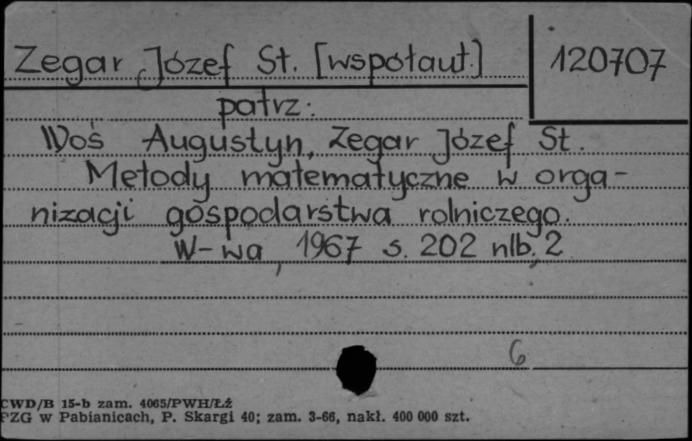 Zegar Józef St. [współaut.]
120707
patrz:
Woś Augustyn, Zegar Józef St.
Metody matematyczne w orga-
nizacji gospodarstwa rolniczego.
W-wa, 1967 s. 202 nlb. 2
6
CWD/B 15-b zam. 4065/PWH/Łż
PZG w Pabianicach, P. Skargi 40; zam. 3-66, nakł. 400 000 szt.